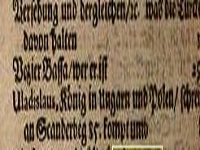 Versehung und dergleichen/ꝛc was die Türck
davon halten
Vezier Bassa/wer er ist
Uladislaus, König in Ungarn und Polen/ schrei
an Scanderbeg 35. kompt umb